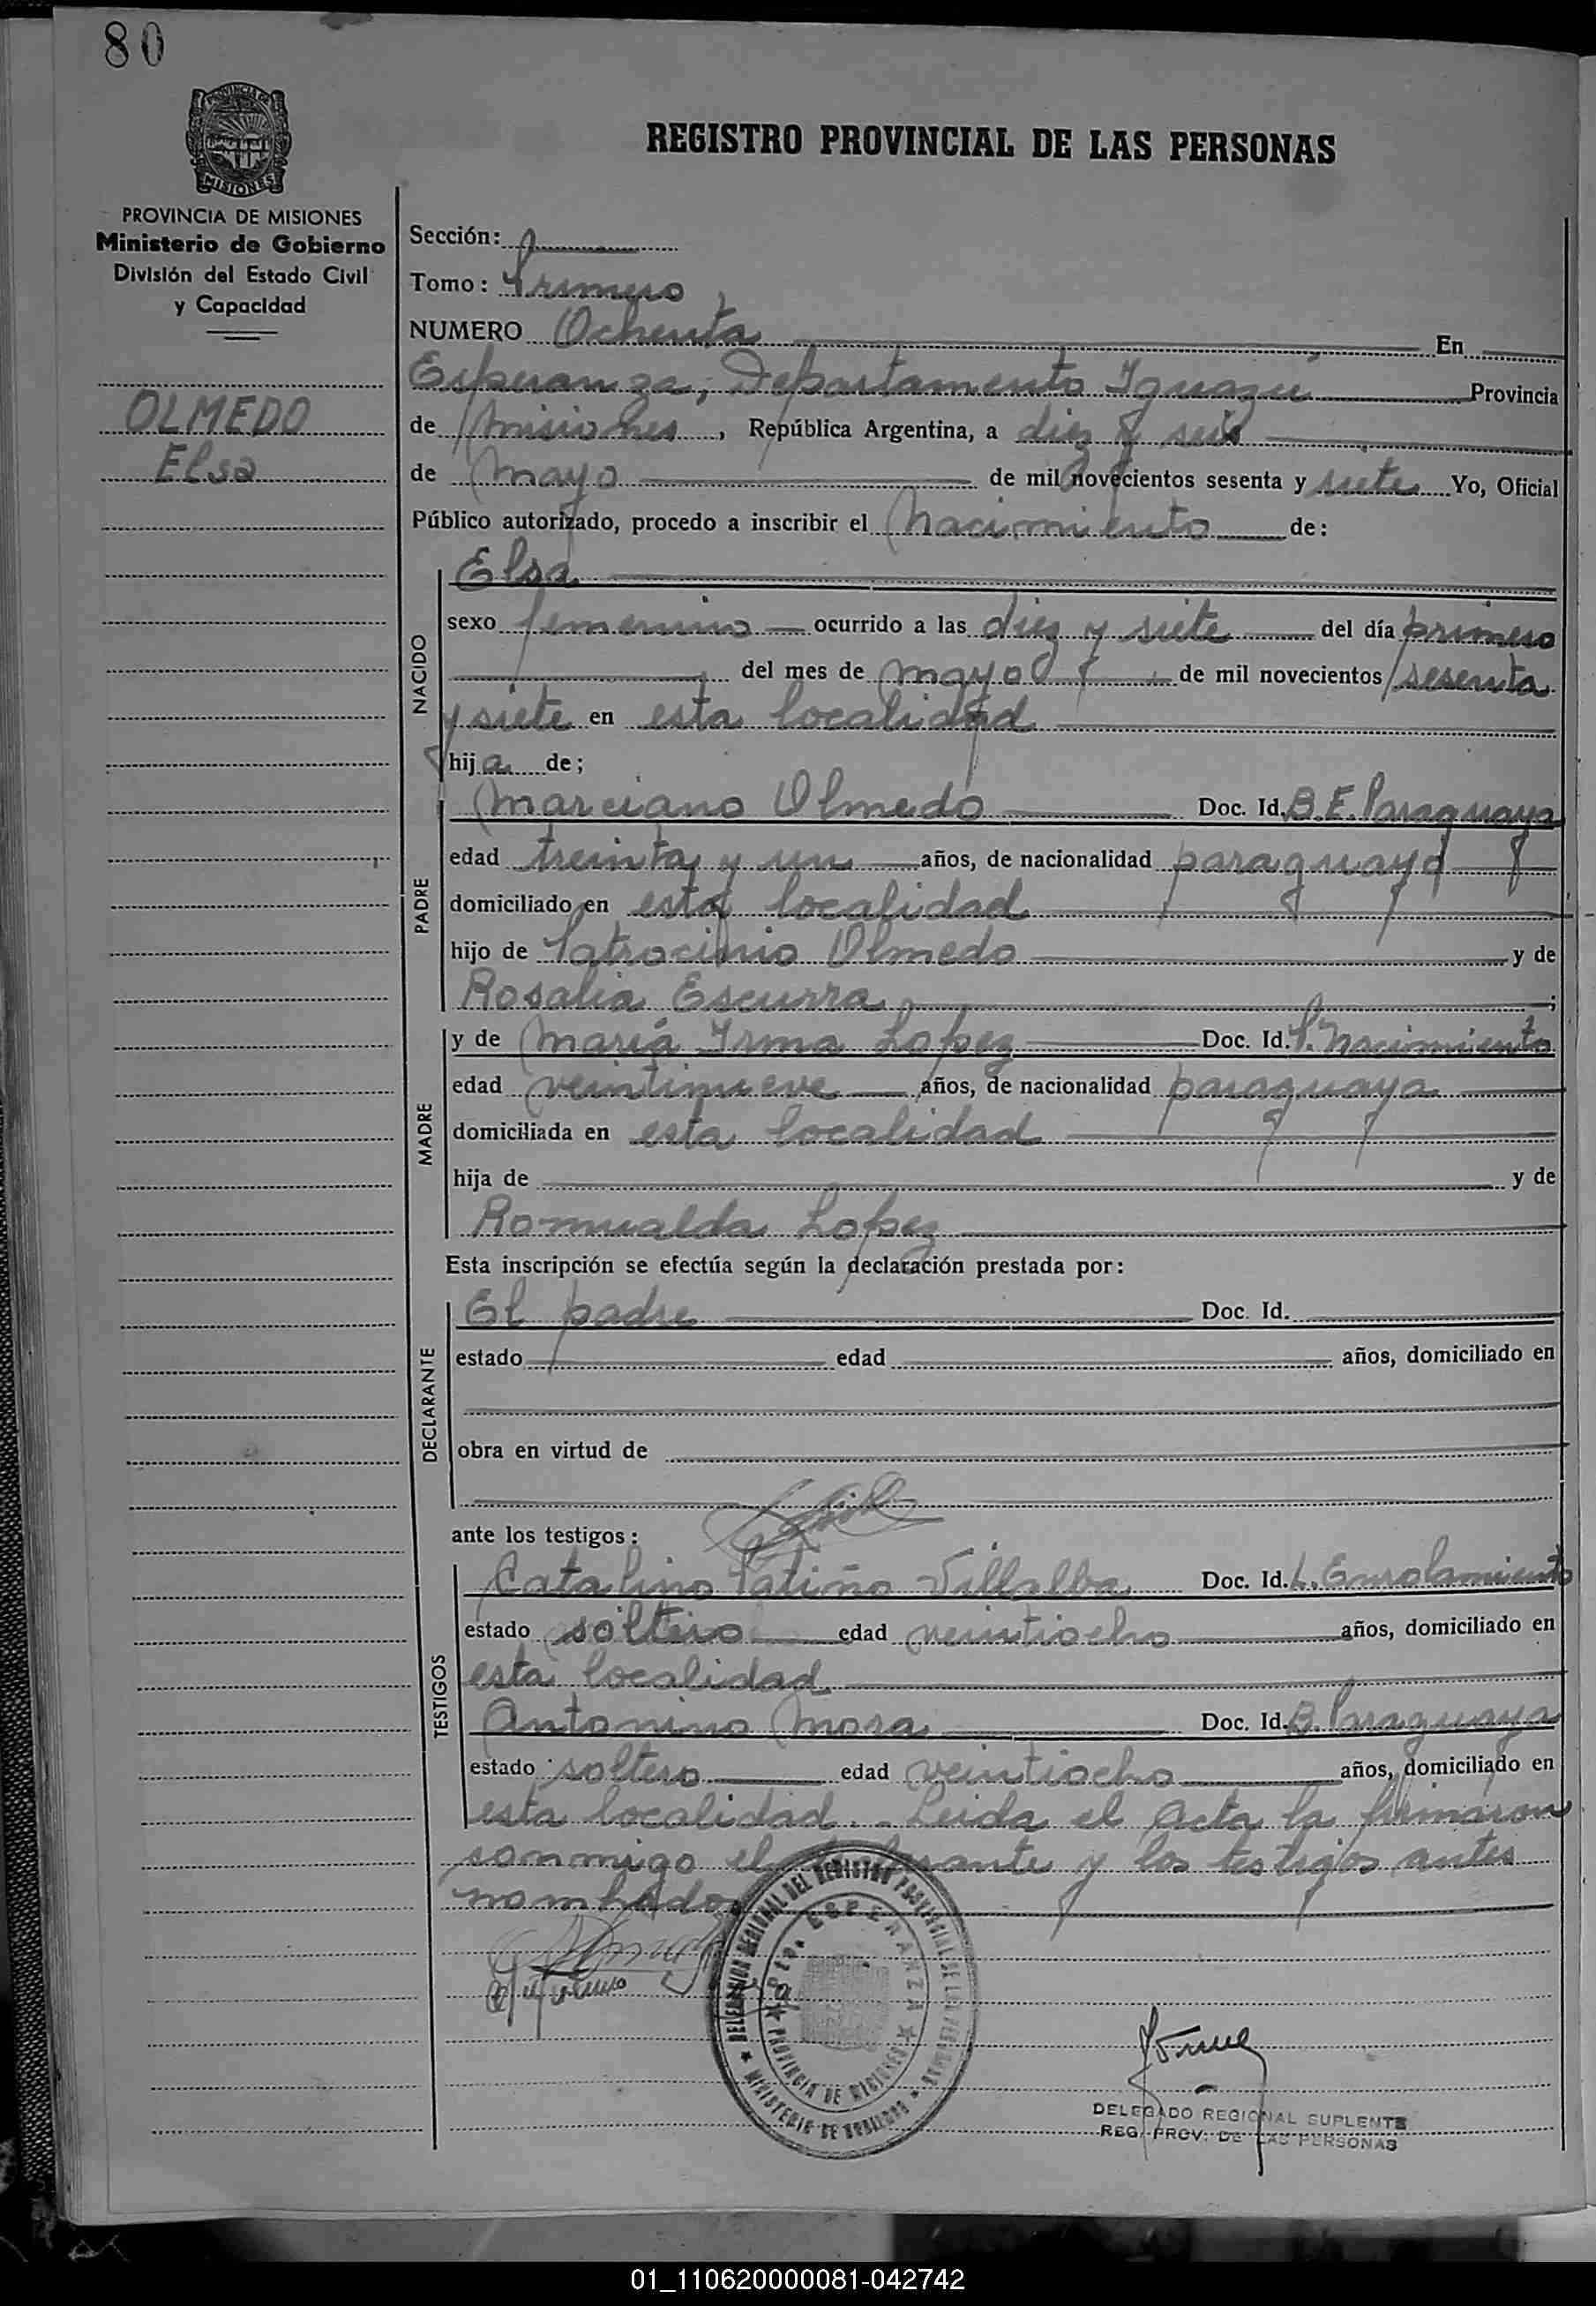 80
PROVINCIA DE
MISIONES
PROVINCIA DE MISIONES
Ministerio de Gobierno
División del Estado Civil
y Capacidad
OLMEDO
Elsa
REGISTRO PROVINCIAL DE LAS PERSONAS
Sección:
Tomo: Primero
NUMERO Ochenta En
Esperanza, Departamento Iguazú Provincia
de Misiones, República Argentina, a diez y seis
de Mayo de mil novecientos sesenta y siete Yo, Oficial
Público autorizado, procedo a inscribir el Nacimiento de:
NACIDO
Elsa
sexo femenino ocurrido a las diez y siete del día primero
del mes de mayo de mil novecientos sesenta
y siete en esta localidad
hija de;
PADRE
Marciano Olmedo Doc. Id. B.E. Paraguaya
edad treinta y un años, de nacionalidad paraguaya
domiciliado en esta localidad
hijo de Patrocinio Olmedo y de
Rosalia Escurra;
MADRE
y de María Irma Lopez Doc. Id. P. Nacimiento
edad veintinueve años, de nacionalidad paraguaya
domiciliada en esta localidad
hija de y de
Romualda Lopez
Esta inscripción se efectúa según la declaración prestada por:
DECLARANTE
El padre Doc. Id.
estado edad años, domiciliado en
obra en virtud de
ante los testigos:
TESTIGOS
Catalino Patiño Villalba Doc. Id. L. Enrolamiento
estado soltero edad veintiocho años, domiciliado en
esta localidad
Antonino Mora Doc. Id. B. Paraguaya
estado soltero edad veintiocho años, domiciliado en
esta localidad. - Leida el acta la firmaron
conmigo el y los testigos antes
nombrados
DELEGACION REGIONAL DEL REGISTRO PROVINCIAL DE LAS PERSONAS
Dto. ESPERANZA
PROVINCIA DE MISIONES
MINISTERIO DE GOBIERNO
DELEGADO REGIONAL SUPLENTE
REG. PROV. DE LAS PERSONAS
01_110620000081-042742